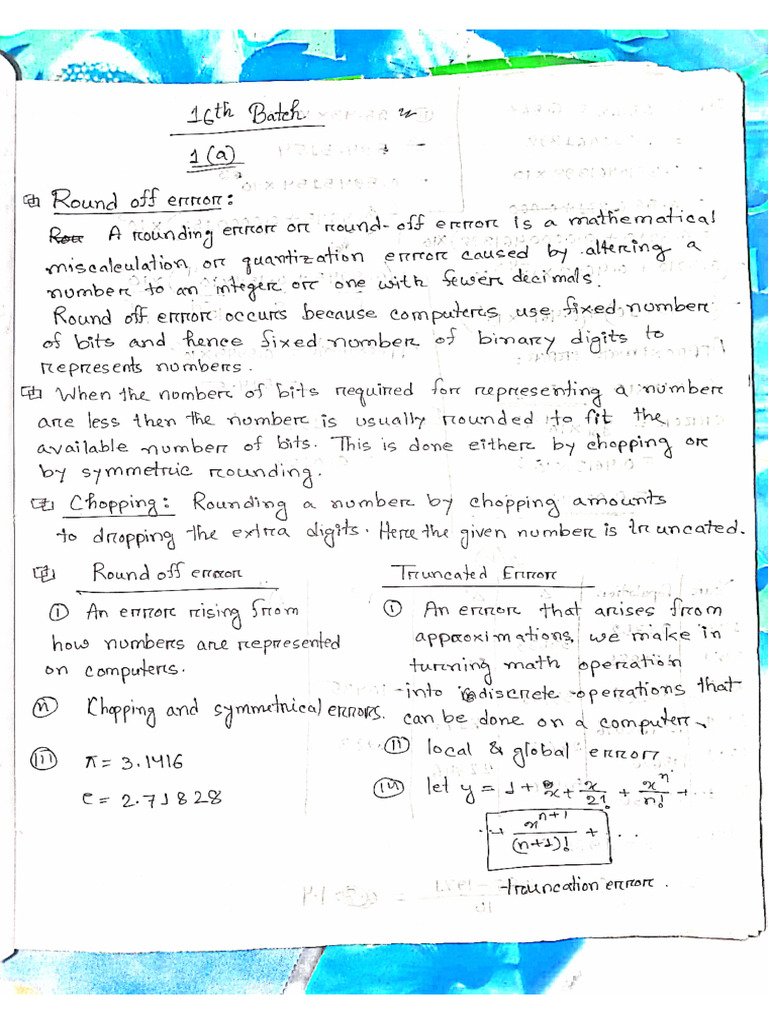 16th Batch
1(a)
Round off error:
A rounding error or round-off error is a mathematical
miscalculation or quantization error caused by altering a
number to an integer or one with fewer decimals.
Round off error occurs because computers use fixed number
of bits and hence fixed number of binary digits to
represents numbers.
When the number of bits required for representing a number
are less then the number is usually rounded to fit the
available number of bits. This is done either by chopping or
by symmetric rounding.
Chopping: Rounding a number by chopping amounts
to dropping the extra digits. Here the given number is truncated.
Round off error
(i) An error rising from
how numbers are represented
on computers.
(ii) Chopping and symmetrical errors.
(iii) π = 3.1416
e = 2.71828
Truncated Error
(i) An error that arises from
approximations, we make in
turning math operation
into discrete operations that
can be done on a computer.
(ii) local & global error
(iii) let y = 1 + x + x/2! + xⁿ/n! + ..
.. + xⁿ⁺¹/(n+1)! + ..
truncation error.